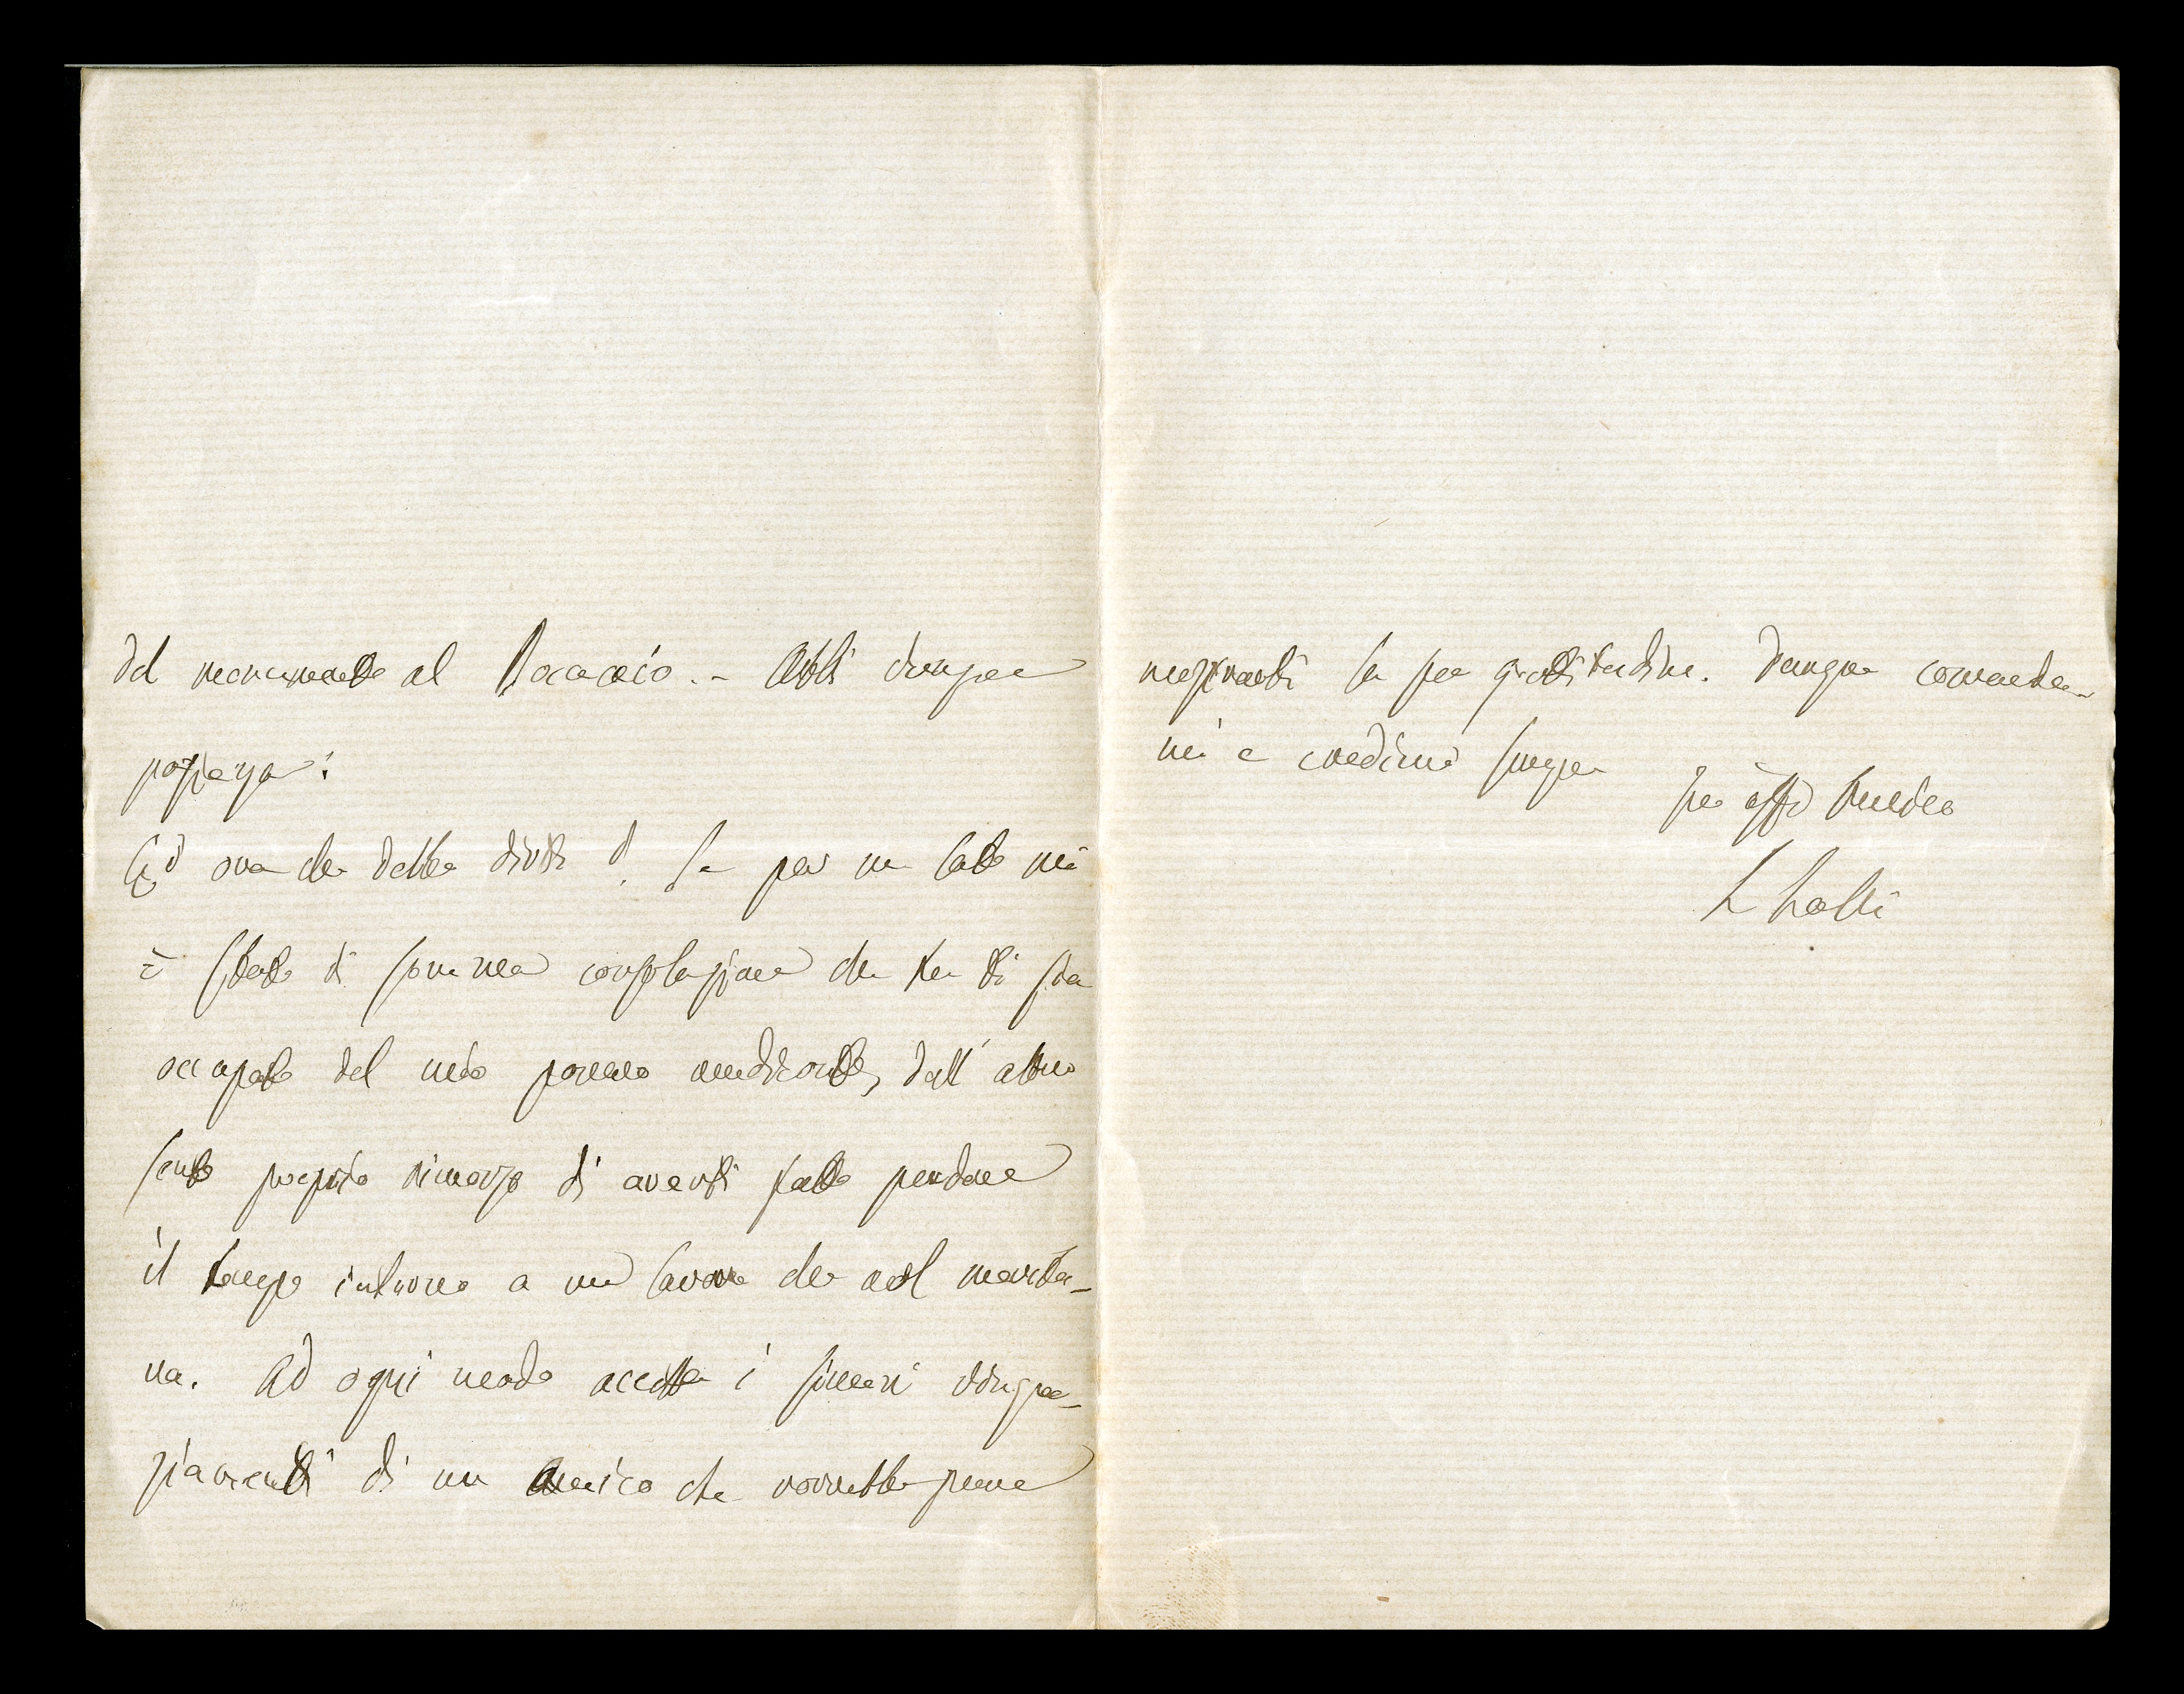 del monumento al Boccaccio. - Abbi dunque
pazienza!
Ed ora che debbo dirti? Se per un lato mi
è stato di somma consolazione che tu ti sia
occupato del mio povero mendicante, dall'altro
sento proprio rimorso di averti fatto perdere
il tempo intorno a un lavoro che nol merita-
va. Ad ogni modo accetta i sinceri ringra-
ziamenti di un amico che vorrebbe pure
mostrarti la sua gratitudine. Dunque comanda-
mi e credimi sempre
tuo affo
L